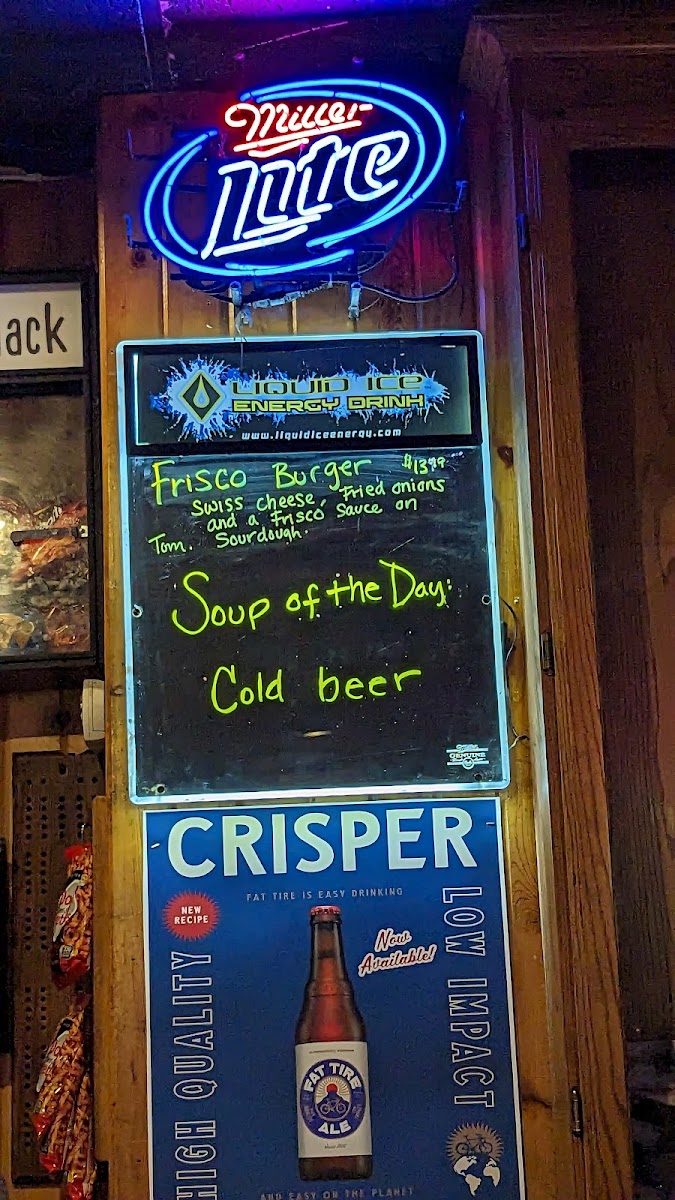 Miller
Lite
ack
LIQUID ICE
ENERGY DRINK
www.liquidiceenergy.com
Frisco Burger $13.99
Swiss cheese, Fried onions
and a Frisco sauce on
Tom. Sourdough.
Soup of the Day:
Cold beer
GENUINE
CRISPER
FAT TIRE IS EASY DRINKING
NEW
RECIPE
Now
Available!
HIGH QUALITY
LOW IMPACT
FAT TIRE
ALE
AND EASY ON THE PLANET